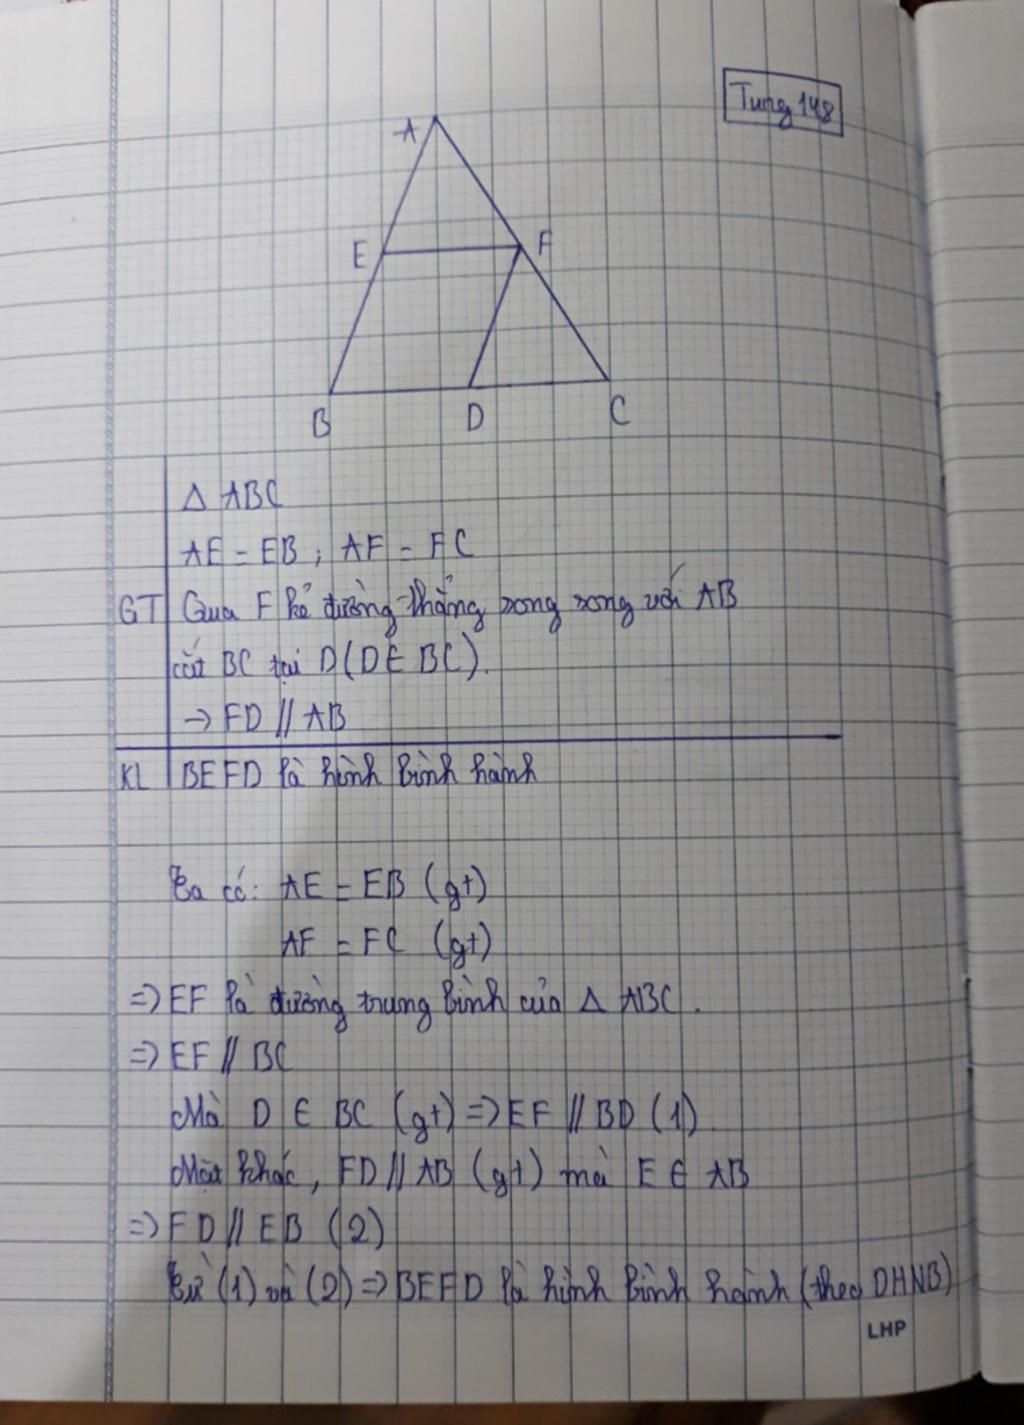 Tung 148
A
E
F
B
D
C
Δ ABC
AE = EB ; AF = FC
GT Qua F kẻ đường thẳng song song với AB
cắt BC tại D (D ∈ BC).
→ FD // AB
KL BEFD là hình bình hành
Ta có: AE = EB (gt)
AF = FC (gt)
=> EF là đường trung bình của Δ ABC.
=> EF // BC
Mà D ∈ BC (gt) => EF // BD (1)
Mặt khác, FD // AB (gt) mà E ∈ AB
=> FD // EB (2)
Từ (1) và (2) => BEFD là hình bình hành (theo DHNB)
LHP